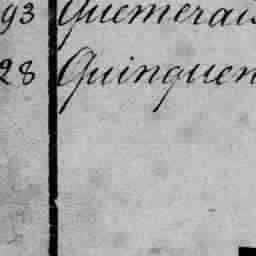 93 Quemerais
28 Quinquen